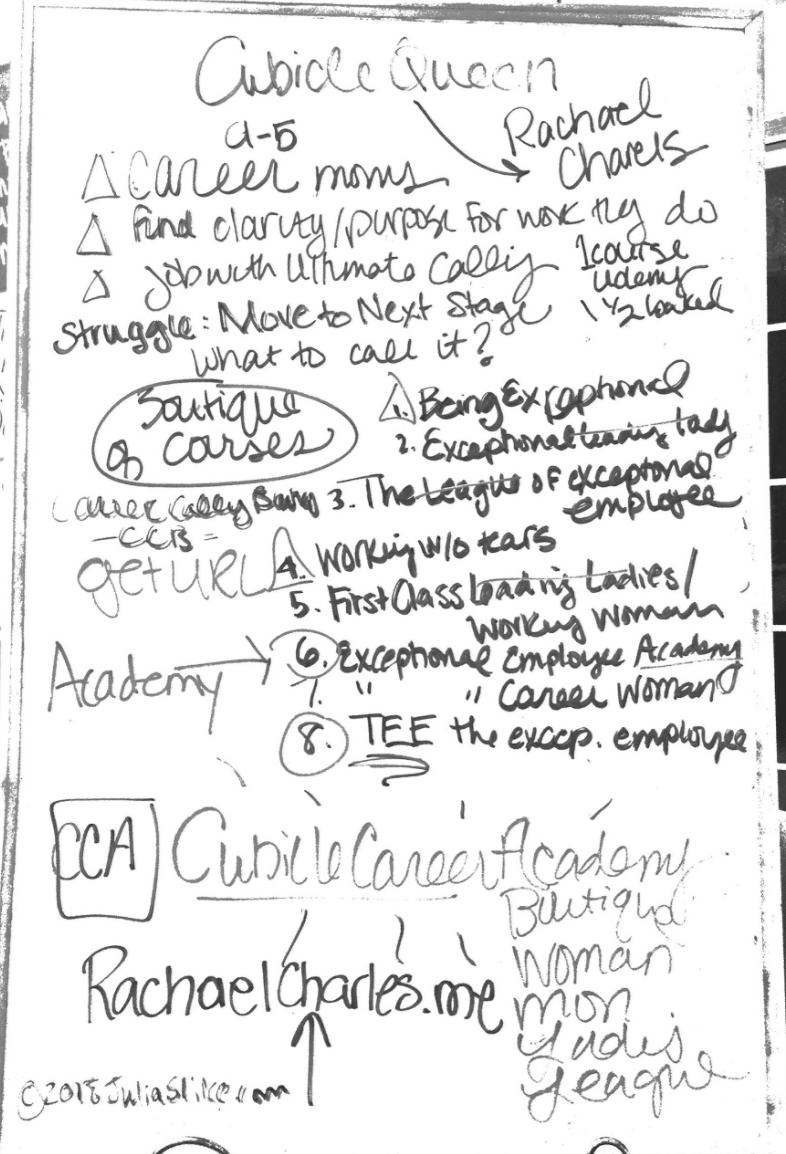 Cubicle Queen
9-5
Rachael
Charels
Career moms
Find clarity/purpose for work they do
Job with Ultimate Calling
1 course
Udemy
1 1/2 baked
Struggle: Move to Next Stage
What to call it?
Boutique
of courses
1. Being Exceptional
2. Exceptional Leading Lady
Career Calling 3. The League of exceptonal
employee
-CCB-
get URL
4. Working w/o tears
5. First Class Leading Ladies/
Working Woman
Academy
6. Exceptional Employee Academy
7. " " Career Woman
8. TEE the excep. employee
CCA
Cubicle Career Academy
Boutique
Woman
Mom
League
RachaelCharles.me
©2018 JuliaSlike.com